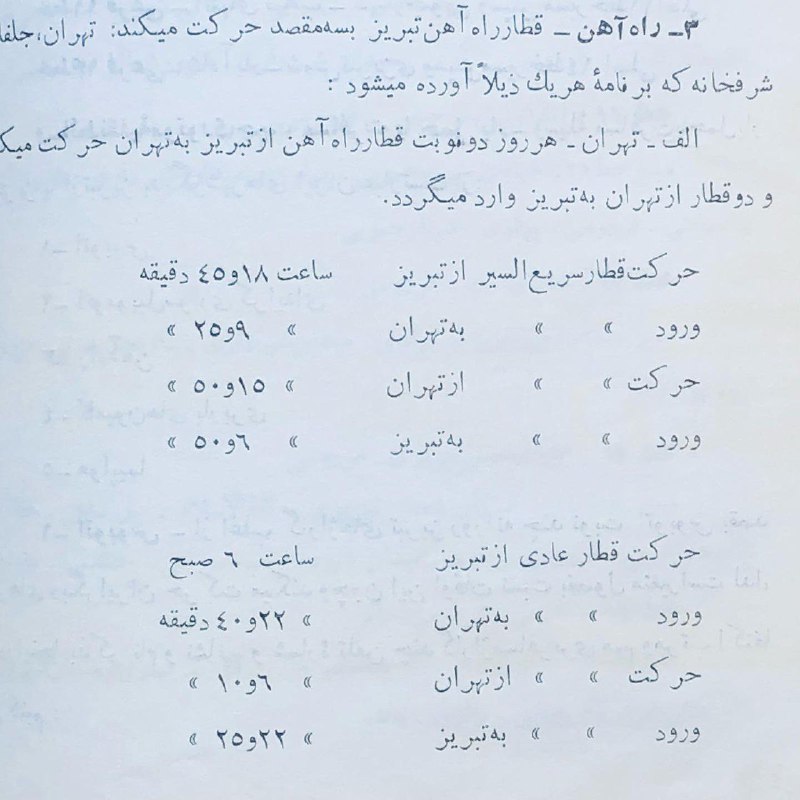 ۳ـ راه‌آهن ـ قطارراه آهن تبریز بسه‌مقصد حرکت میکند: تهران،جلفا
شرفخانه که برنامهٔ هریك ذیلاً آورده میشود :
الف ـ تهران ـ هرروز دونوبت قطارراه آهن ازتبریز به‌تهران حرکت میک
و دوقطار ازتهران به‌تبریز وارد میگردد.
حرکت‌قطارسریع‌السیر ازتبریز ساعت ۱۸و٤۵ دقیقه
ورود » » به‌تهران » ۹و۲۵ »
حرکت » » ازتهران » ۱۵و۵۰ »
ورود » » به‌تبریز » ٦و۵۰ »
حرکت قطار عادی ازتبریز ساعت ٦ صبح
ورود » » به‌تهران » ۲۲و٤۰ دقیقه
حرکت » » ازتهران » ٦و۱۰ »
ورود » » به‌تبریز » ۲۲و۲۵ »